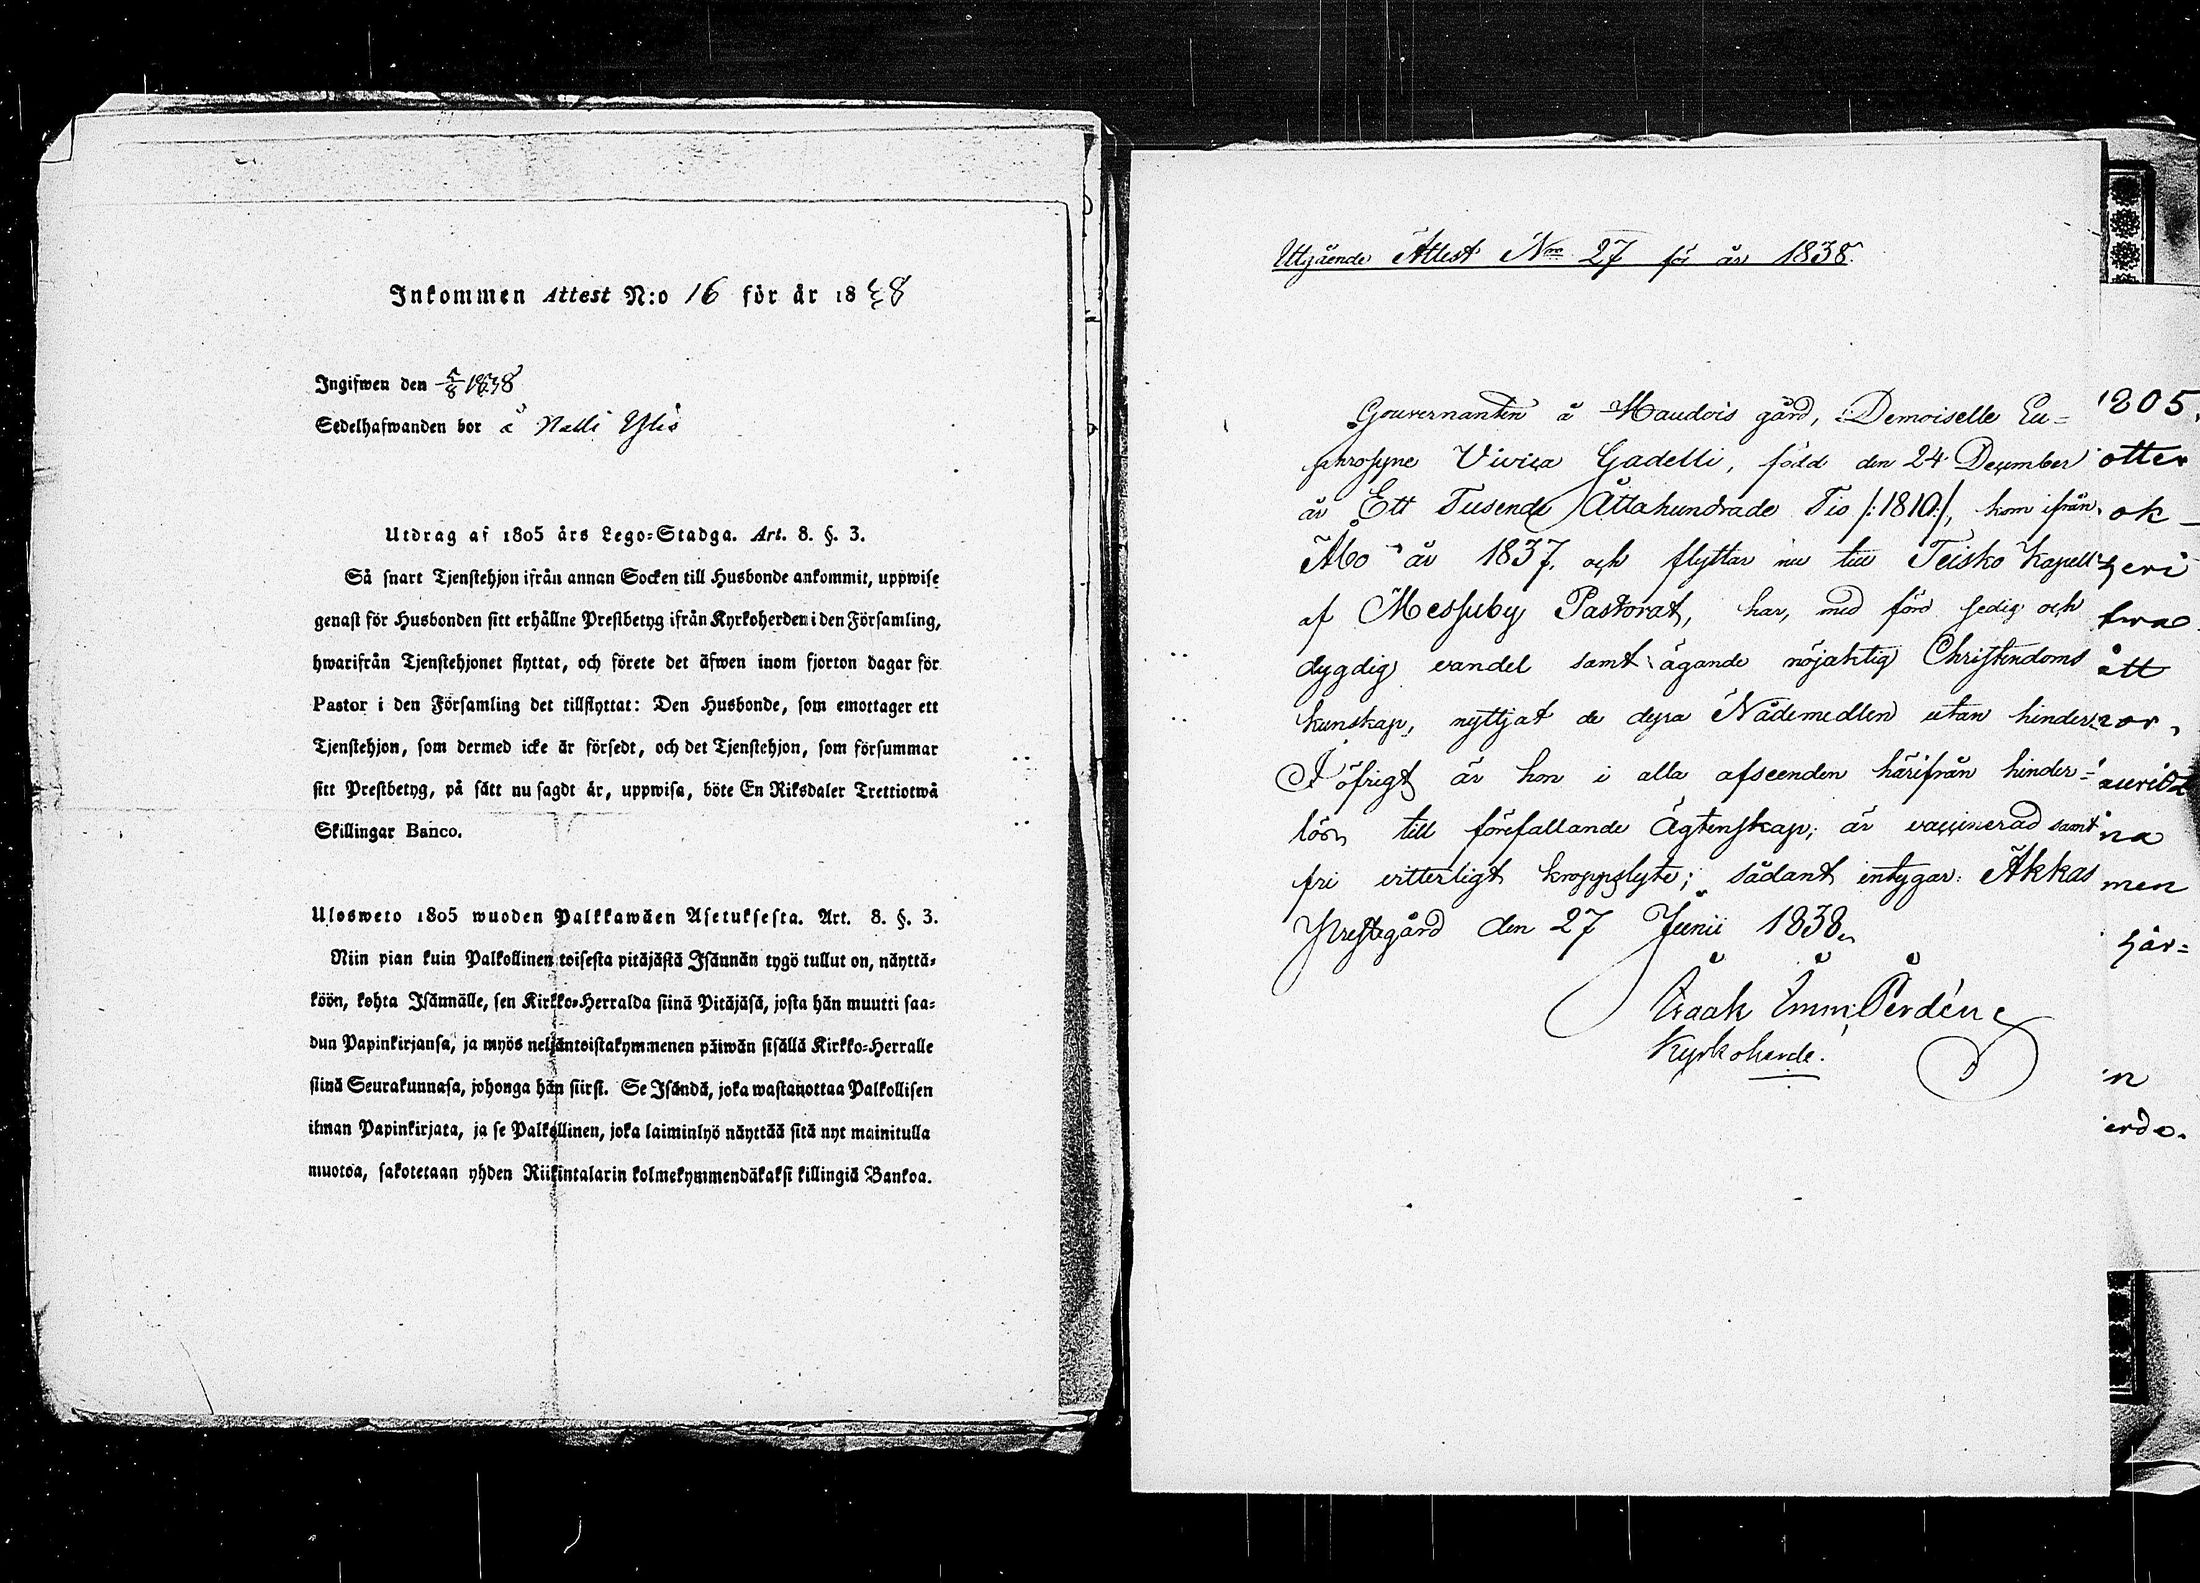 Inkommen Attest N:o 16 för år 1838
Ingifwen den 5/8 1838
Sedelhafwanden bor å
Utdrag af 1805 års Lego-Stadga. Art. 8. §. 3.
Så snart Tjenstehjon ifrån annan Socken till Husbonde ankommit, uppwise
genast för Husbonden sitt erhållne Prestbetyg ifrån Kyrkoherden i den Församling,
hwarifrån Tjenstehjonet flyttat, och förete det äfwen inom fjorton dagar för
Pastor i den Församling det tillflyttat: Den Husbonde, som emottager ett
Tjenstehjon, som dermed icke är försedt, och det Tjenstehjon, som försummar
sitt Prestbetyg, på sätt nu sagdt är, uppwisa, böte En Riksdaler Trettiotwå
Skillingar Banco.
Ulosweto 1805 wuoden Palkkawäen Asetuksesta. Art. 8. §. 3.
Niin pian kuin Palkollinen toisesta pitäjästä Isännän tygö tullut on, näyttä-
köön, kohta Isännälle, sen Kirkko-Herralda siinä Pitäjäsä, josta hän muutti saa-
dun Papinkirjansa, ja myös neljäntoistakymmenen päiwän sisällä Kirkko-Herralle
siinä Seurakunnasa, johonga hän siirsi. Se Isändä, joka wastanottaa Palkollisen
ilman Papinkirjata, ja se Palkollinen, joka laiminlyö näyttää sitä nyt mainitulla
muotoa, sakotetaan yhden Riikintalarin kolmekymmendäkaksi killingiä Bankoa.
Utgående Attest Nro 27 för år 1838.
Gouvernanten å Haudois gård, Demoiselle Eu=
phrosyne Viviça Gadelli, född den 24 December
år Ett Tusende Åttahundrade Tio /:1810:/, kom ifrån
Åbo år 1837. och flyttar nu till Teisko Kapell
af Messuby Pastorat, har, med förd sedig och
dygdig vandel samt ägande nöjaktig Christendoms
kunskap, nyttjat de dyra Nådemedlen utan hinder.
I öfrigt är hon i alla afseenden härifrån hinder=
lös till förefallande Ägtenskap; är vaccinerad samt
fri vitterligt kroppslyte; sådant intygar. Akkas
Prestgård den 27 Junii 1838.
Isaak Imm: Perdén
Kyrkoherde.
1805.
otter
ok
att
na
men
här=